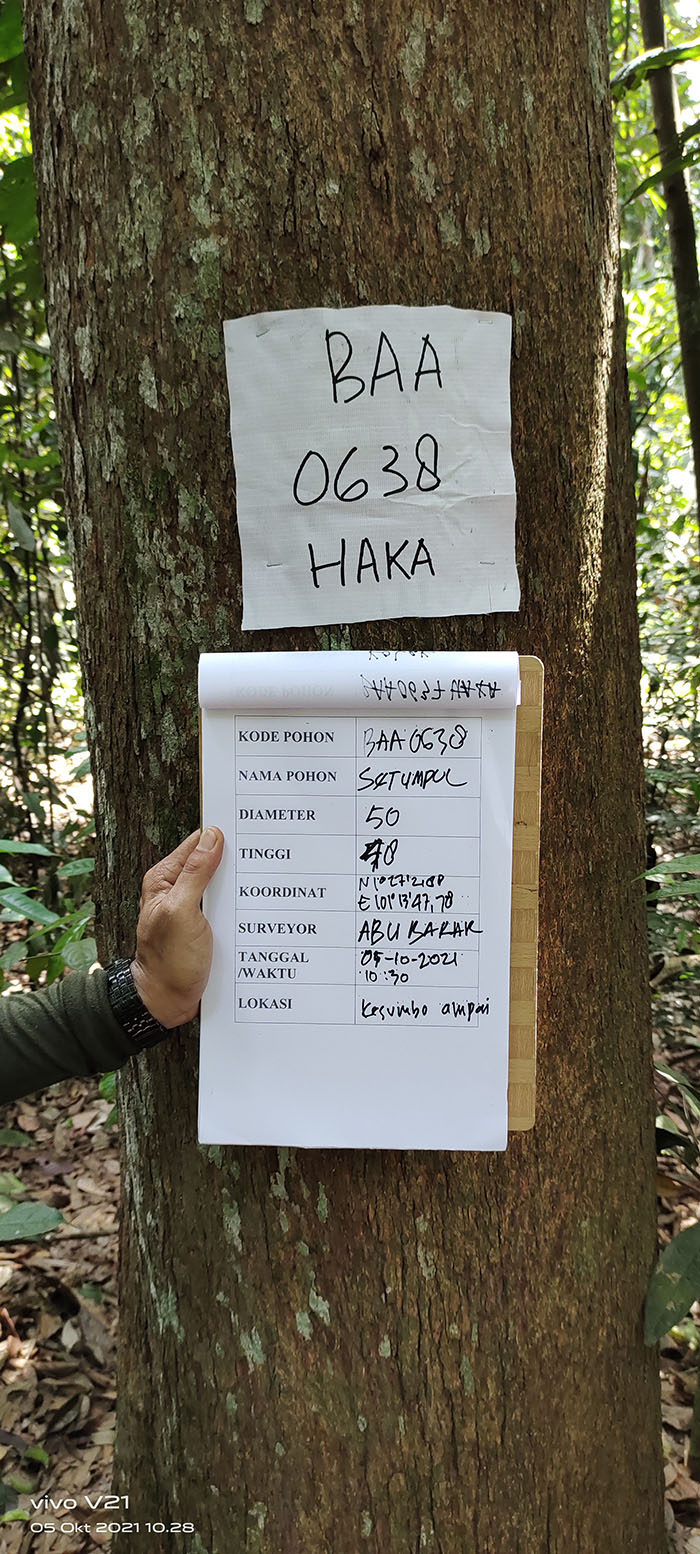 BAA
0638
HAKA
KODE POHON BAA 0638
NAMA POHON SETUMPUL
DIAMETER 50
TINGGI 18
KOORDINAT N 1° 27' 2,88
E 101° 13' 47,78
SURVEYOR ABU BAKAR
TANGGAL 05-10-2021
/WAKTU 10:30
LOKASI Kesumbo ampai
vivo V21
05 Okt 2021 10.28